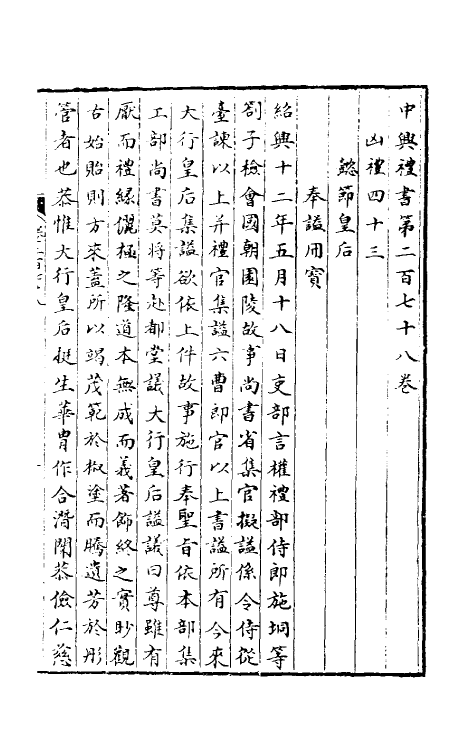 中興禮書第二百七十八卷
凶禮四十三
懿節皇后
奉謚用寶
紹興十二年五月十八日吏部言權禮部侍郎施坰等
劄子檢會國朝園陵故事尚書省集官擬謚係令侍從
臺諫以上并禮官集謚六曹郎官以上書謚所有今來
大行皇后集謚欲依上件故事施行奉聖旨依本部集
工部尚書莫將等赴都堂議大行皇后謚議曰尊雖有
厭而禮緣儷極之隆道本無成而義著飾終之實眇觀
古始貽則方來蓋所以竭茂範於椒塗而騰遺芳於彤
管者也恭惟大行皇后挺生華冑作合潛閈恭儉仁慈